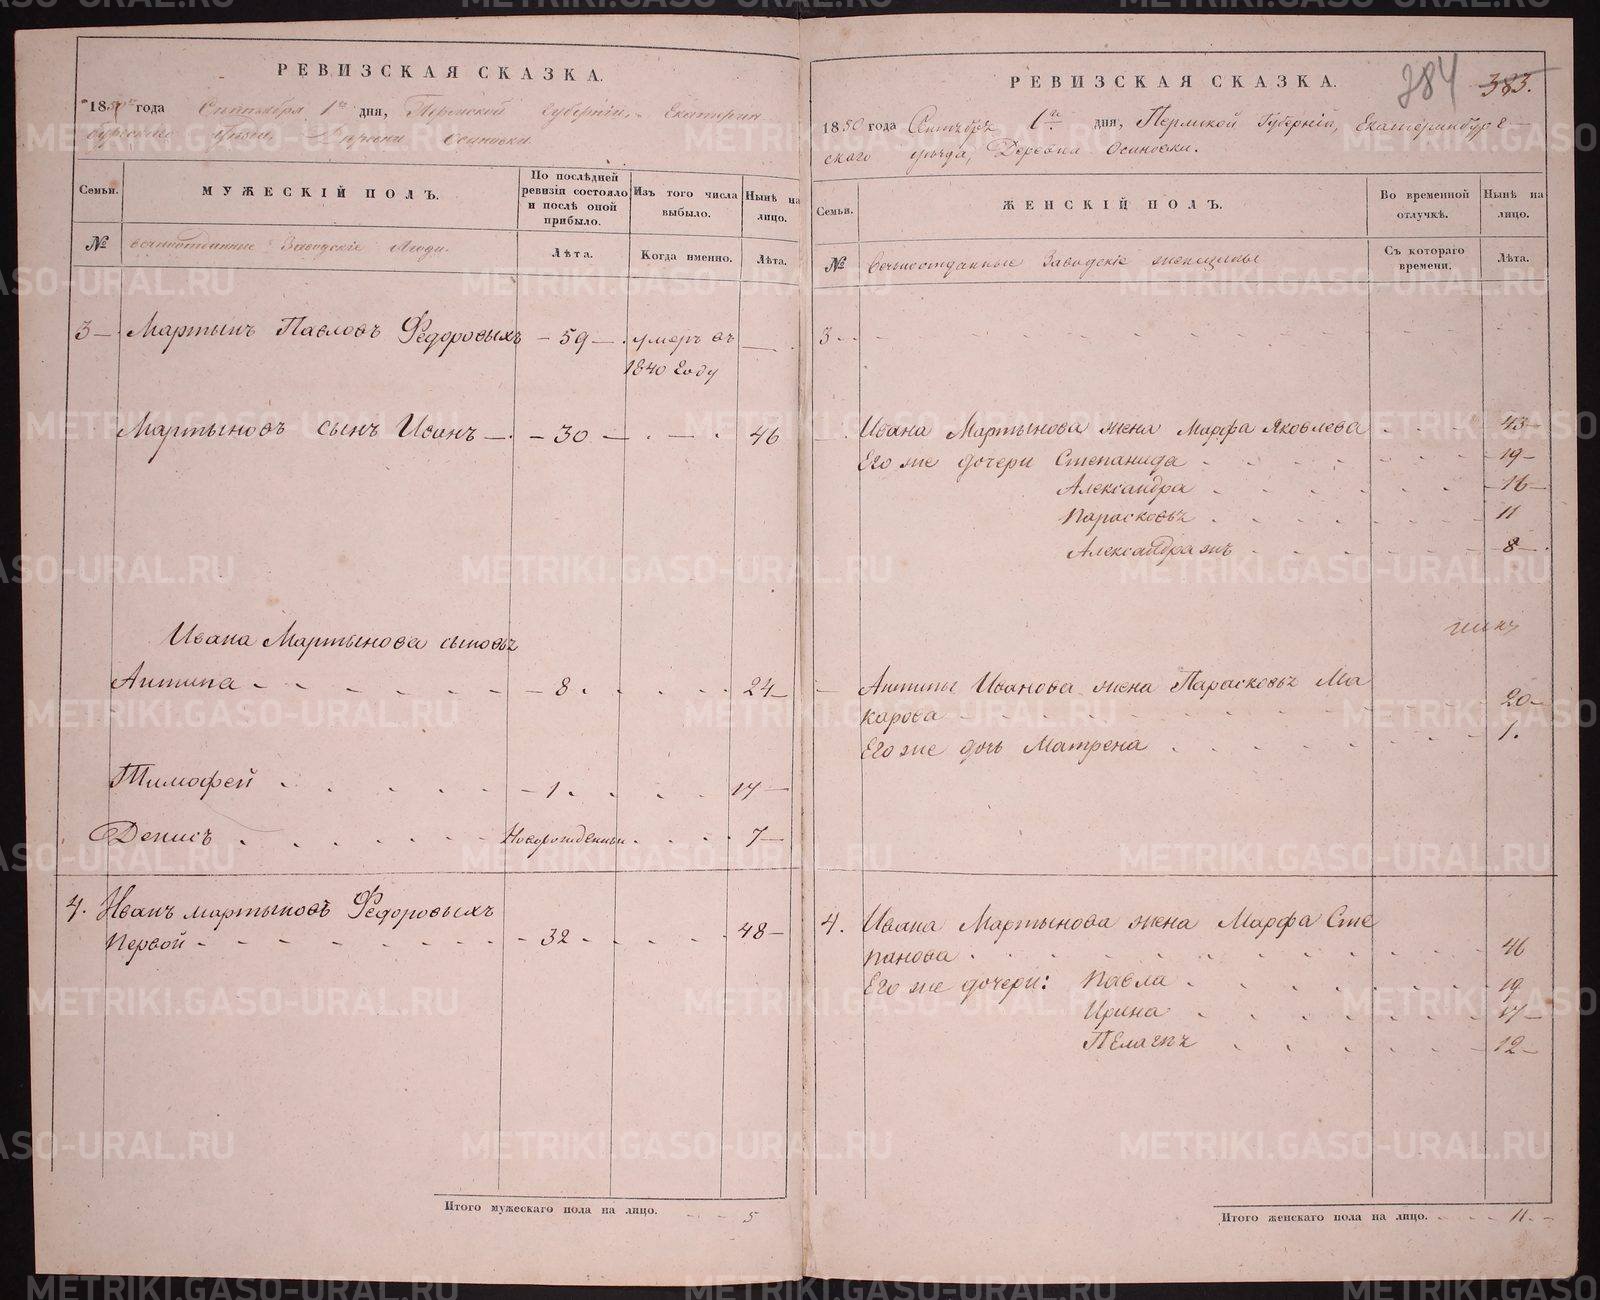 РЕВИЗСКАЯ СКАЗКА.
1850 года Сентября 1го дня, Пермской Губернiи, Екатерин
бургскаго уѣзда, Деревни Осиновки.
Семьи.
МУЖЕСКIЙ ПОЛЪ.
По послѣдней ревизiи состояло и послѣ оной прибыло.
Изъ того числа выбыло.
Нынѣ на лицо.
№
вечноотданные Заводскiе Люди.
Лѣта.
Когда именно.
Лѣта.
3 — Мартынъ Павловъ Ѳедоровыхъ — 59 — умеръ въ —
1840 году
Мартыновъ сынъ Иванъ — 30 — 46
Ивана Мартынова сыновья
Антипа 8 24
Тимофей 1 17
Денисъ Новорожденный 7
4. Иванъ Мартыновъ Ѳедоровыхъ
Первой 32 48
Итого мужескаго пола на лицо. 5
384 383.
РЕВИЗСКАЯ СКАЗКА.
1850 года Сентября 1го дня, Пермской Губернiи, Екатеринбург-
скаго уѣзда, Деревни Осиновки.
Семьи.
ЖЕНСКIЙ ПОЛЪ.
Во временной отлучкѣ.
Нынѣ на лицо.
№
Вечноотданные Заводскiе женщины
Съ котораго времени.
Лѣта.
3
Ивана Мартынова жена Марфа Яковлева 43
Его же дочери Степанида 19
Александра 16
Парасковья 11
Александра жъ 8
Антипы Иванова жена Парасковья Ма
карова 20
Его же дочь Матрена 1.
4. Ивана Мартынова жена Марфа Сте
панова 46
Его же дочери: Павла 19
Ирина 17
Пелагея 12
Итого женскаго пола на лицо. 11.
METRIKI.GASO-URAL.RU